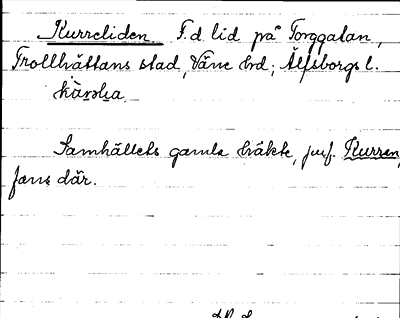 Kurreliden F.d. lid på Torggatan,
Trollhättans stad, Väne hrd; Älfsborgs l.
Samhällets gamla häkte, jurf. Kurran,
fans där.